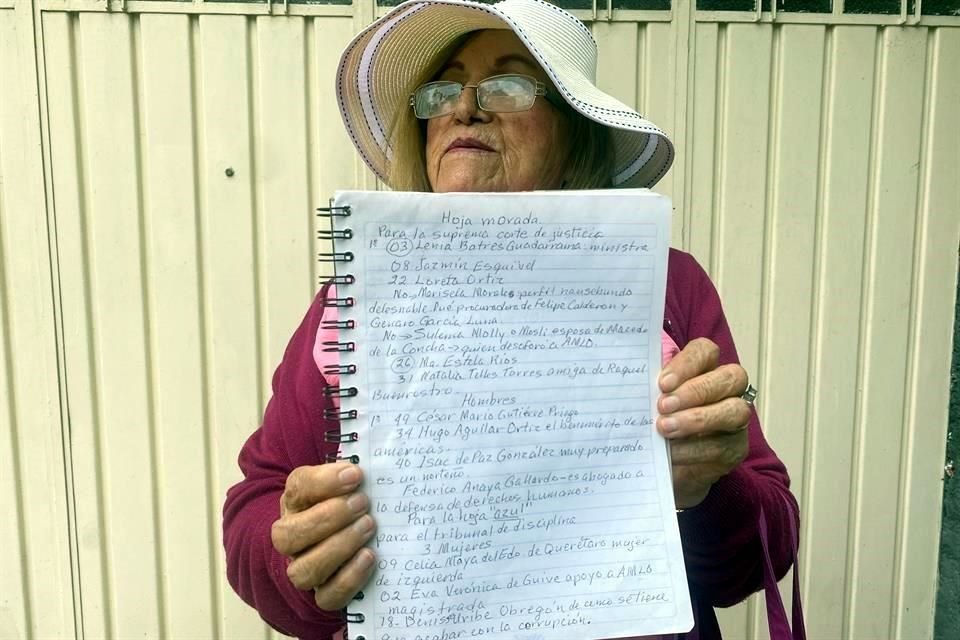 Hoja morada
Para la suprema corte de justicia
1ª (03) Lenia Batres Guadarrama-ministra
08 Jazmín Esquivel
22 Loreta Ortiz
No→ Marisela Morales-perfil nauseabundo
deleznable. Fué procuradora de Felipe Calderon y
Genaro García Luna
No→ Sulema Molly o Mosli esposa de Macedo
de la Concha→quien desaforó a AMLO.
(26) Ma. Estela Rios
31 Natalia Telles Torres amiga de Raquel
Buenrostro.
Hombres
1º 49 César Mario Gutiérre Priego
34 Hugo Aguilar Ortiz el benemérito de las
américas.
40 Isac de Paz González muy preparado
es un norteño
Federico Anaya Gallardo-es abogado a
la defensa de derechos humanos.
Para la hoja "azul"
para el tribunal de disciplina
3 Mujeres
09 Celia Maya del Edo de Querétaro mujer
de izquierda
02 Eva Verónica de Guive apoyo a AMLO
magistrada
18- Uribe Obregón de como se tiene
que acabar con la corrupción.